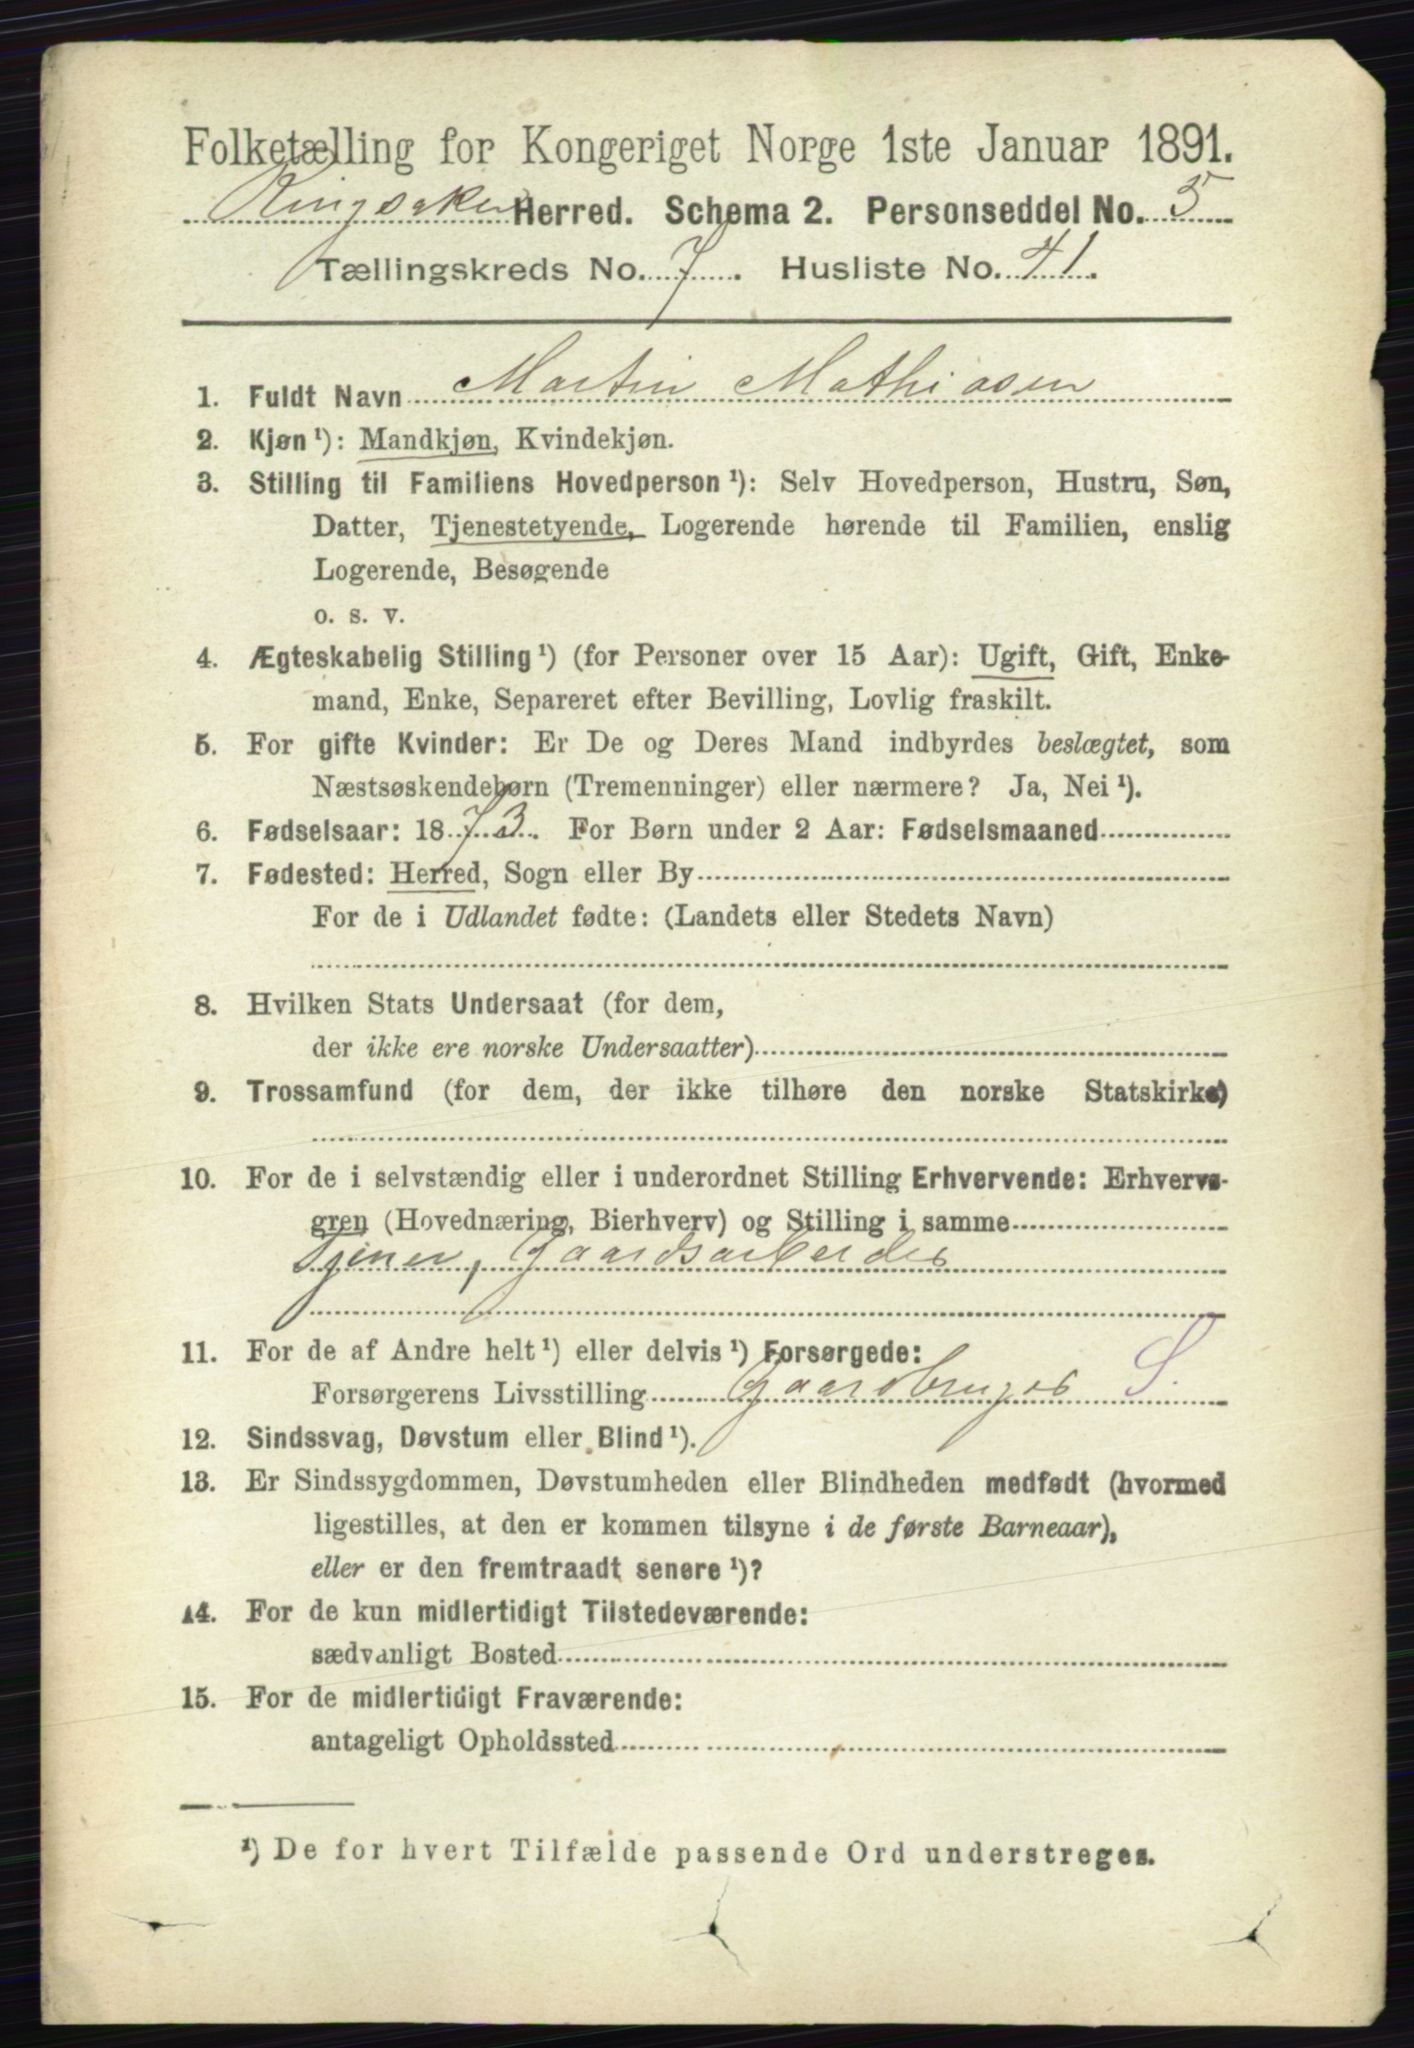 Folketælling for Kongeriget Norge 1ste Januar 1891.
Ringsaker Herred. Schema 2. Personseddel No. 5
Tællingskreds No. 7. Husliste No. 41.
1. Fuldt Navn Martin Mathiasen
2. Kjøn ¹): Mandkjøn, Kvindekjøn.
3. Stilling til Familiens Hovedperson ¹): Selv Hovedperson, Hustru, Søn,
Datter, Tjenestetyende, Logerende hørende til Familien, enslig
Logerende, Besøgende
o. s. v.
4. Ægteskabelig Stilling ¹) (for Personer over 15 Aar): Ugift, Gift, Enke-
mand, Enke, Separeret efter Bevilling, Lovlig fraskilt.
5. For gifte Kvinder: Er De og Deres Mand indbyrdes beslægtet, som
Næstsøskendebørn (Tremenninger) eller nærmere? Ja, Nei ¹).
6. Fødselsaar: 1873. For Børn under 2 Aar: Fødselsmaaned
7. Fødested: Herred, Sogn eller By
For de i Udlandet fødte: (Landets eller Stedets Navn)
8. Hvilken Stats Undersaat (for dem,
der ikke ere norske Undersaatter)
9. Trossamfund (for dem, der ikke tilhøre den norske Statskirke)
10. For de i selvstændig eller i underordnet Stilling Erhvervende: Erhvervs-
gren (Hovednæring, Bierhverv) og Stilling i samme
Tjener, Gaardsarbeider
11. For de af Andre helt ¹) eller delvis ¹) Forsørgede:
Forsørgerens Livsstilling Gaardbruger S.
12. Sindssvag, Døvstum eller Blind ¹).
13. Er Sindssygdommen, Døvstumheden eller Blindheden medfødt (hvormed
ligestilles, at den er kommen tilsyne i de første Barneaar),
eller er den fremtraadt senere ¹)?
14. For de kun midlertidigt Tilstedeværende:
sædvanligt Bosted
15. For de midlertidigt Fraværende:
antageligt Opholdssted
¹) De for hvert Tilfælde passende Ord understreges.